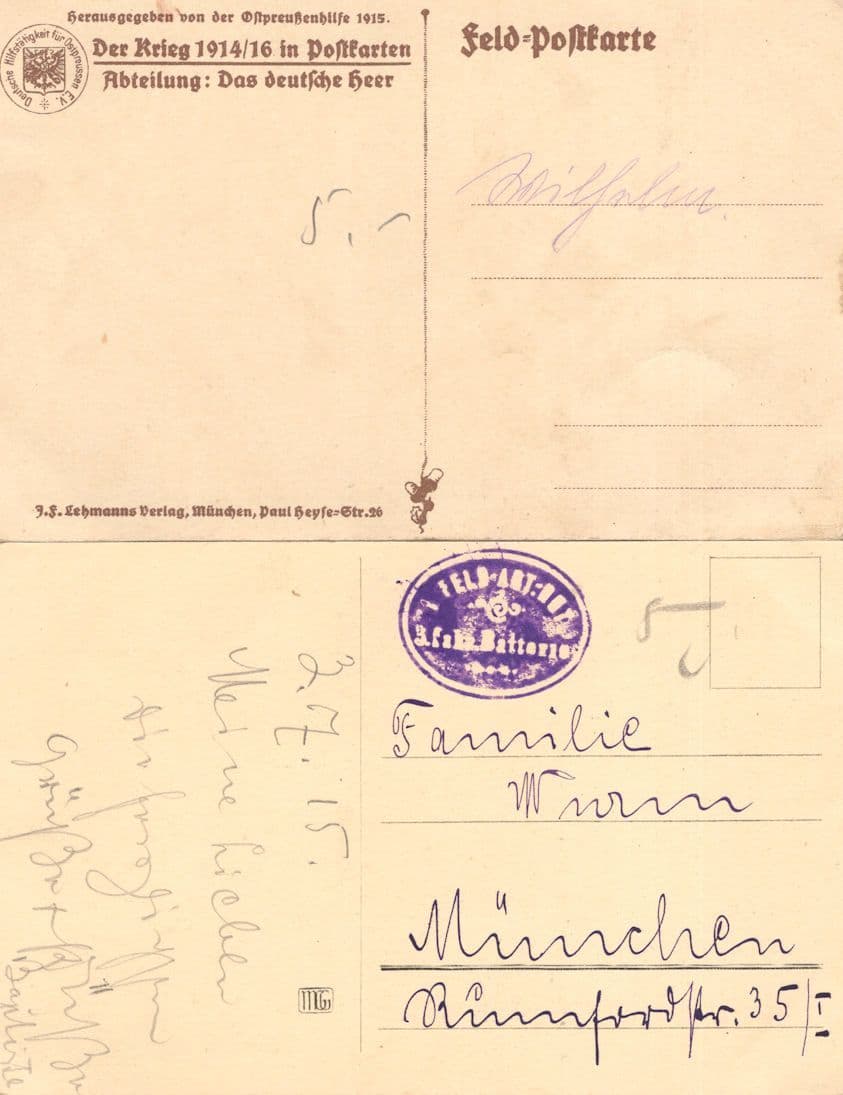 Herausgegeben von der Ostpreußenhilfe 1915.
Der Krieg 1914/16 in Postkarten
Abteilung: Das deutsche Heer
Deutsche Hilfstätigkeit für Ostpreussen E.V.
Feld-Postkarte
Wilhelm.
5.-
J.F. Lehmanns Verlag, München, Paul Heyse-Str. 26
FELD-ART:
Batterie
5
Familie
Wurm
München
Rumfordstr. 35/I
2.7.15.
Meine Lieben
Die herzlichsten
Grüße + Küße
Baptiste
MG